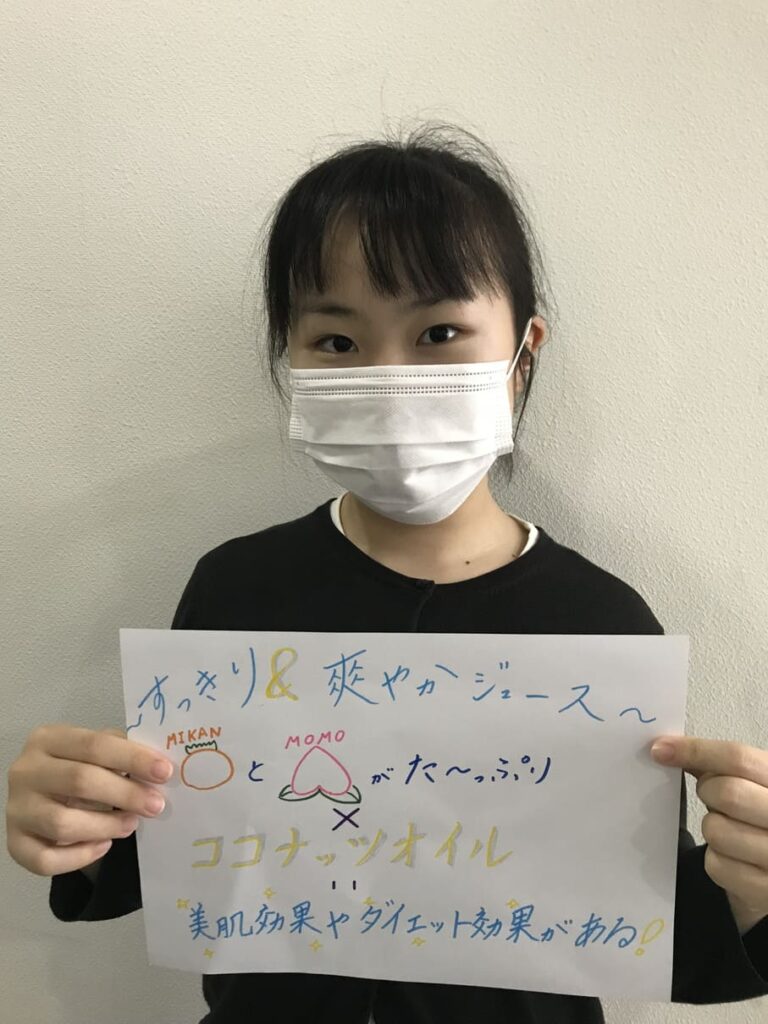 ～すっきり&爽やかジュース～
MIKAN MOMO
とがた～っぷり
×
ココナッツオイル
=
美肌効果やダイエット効果がある!